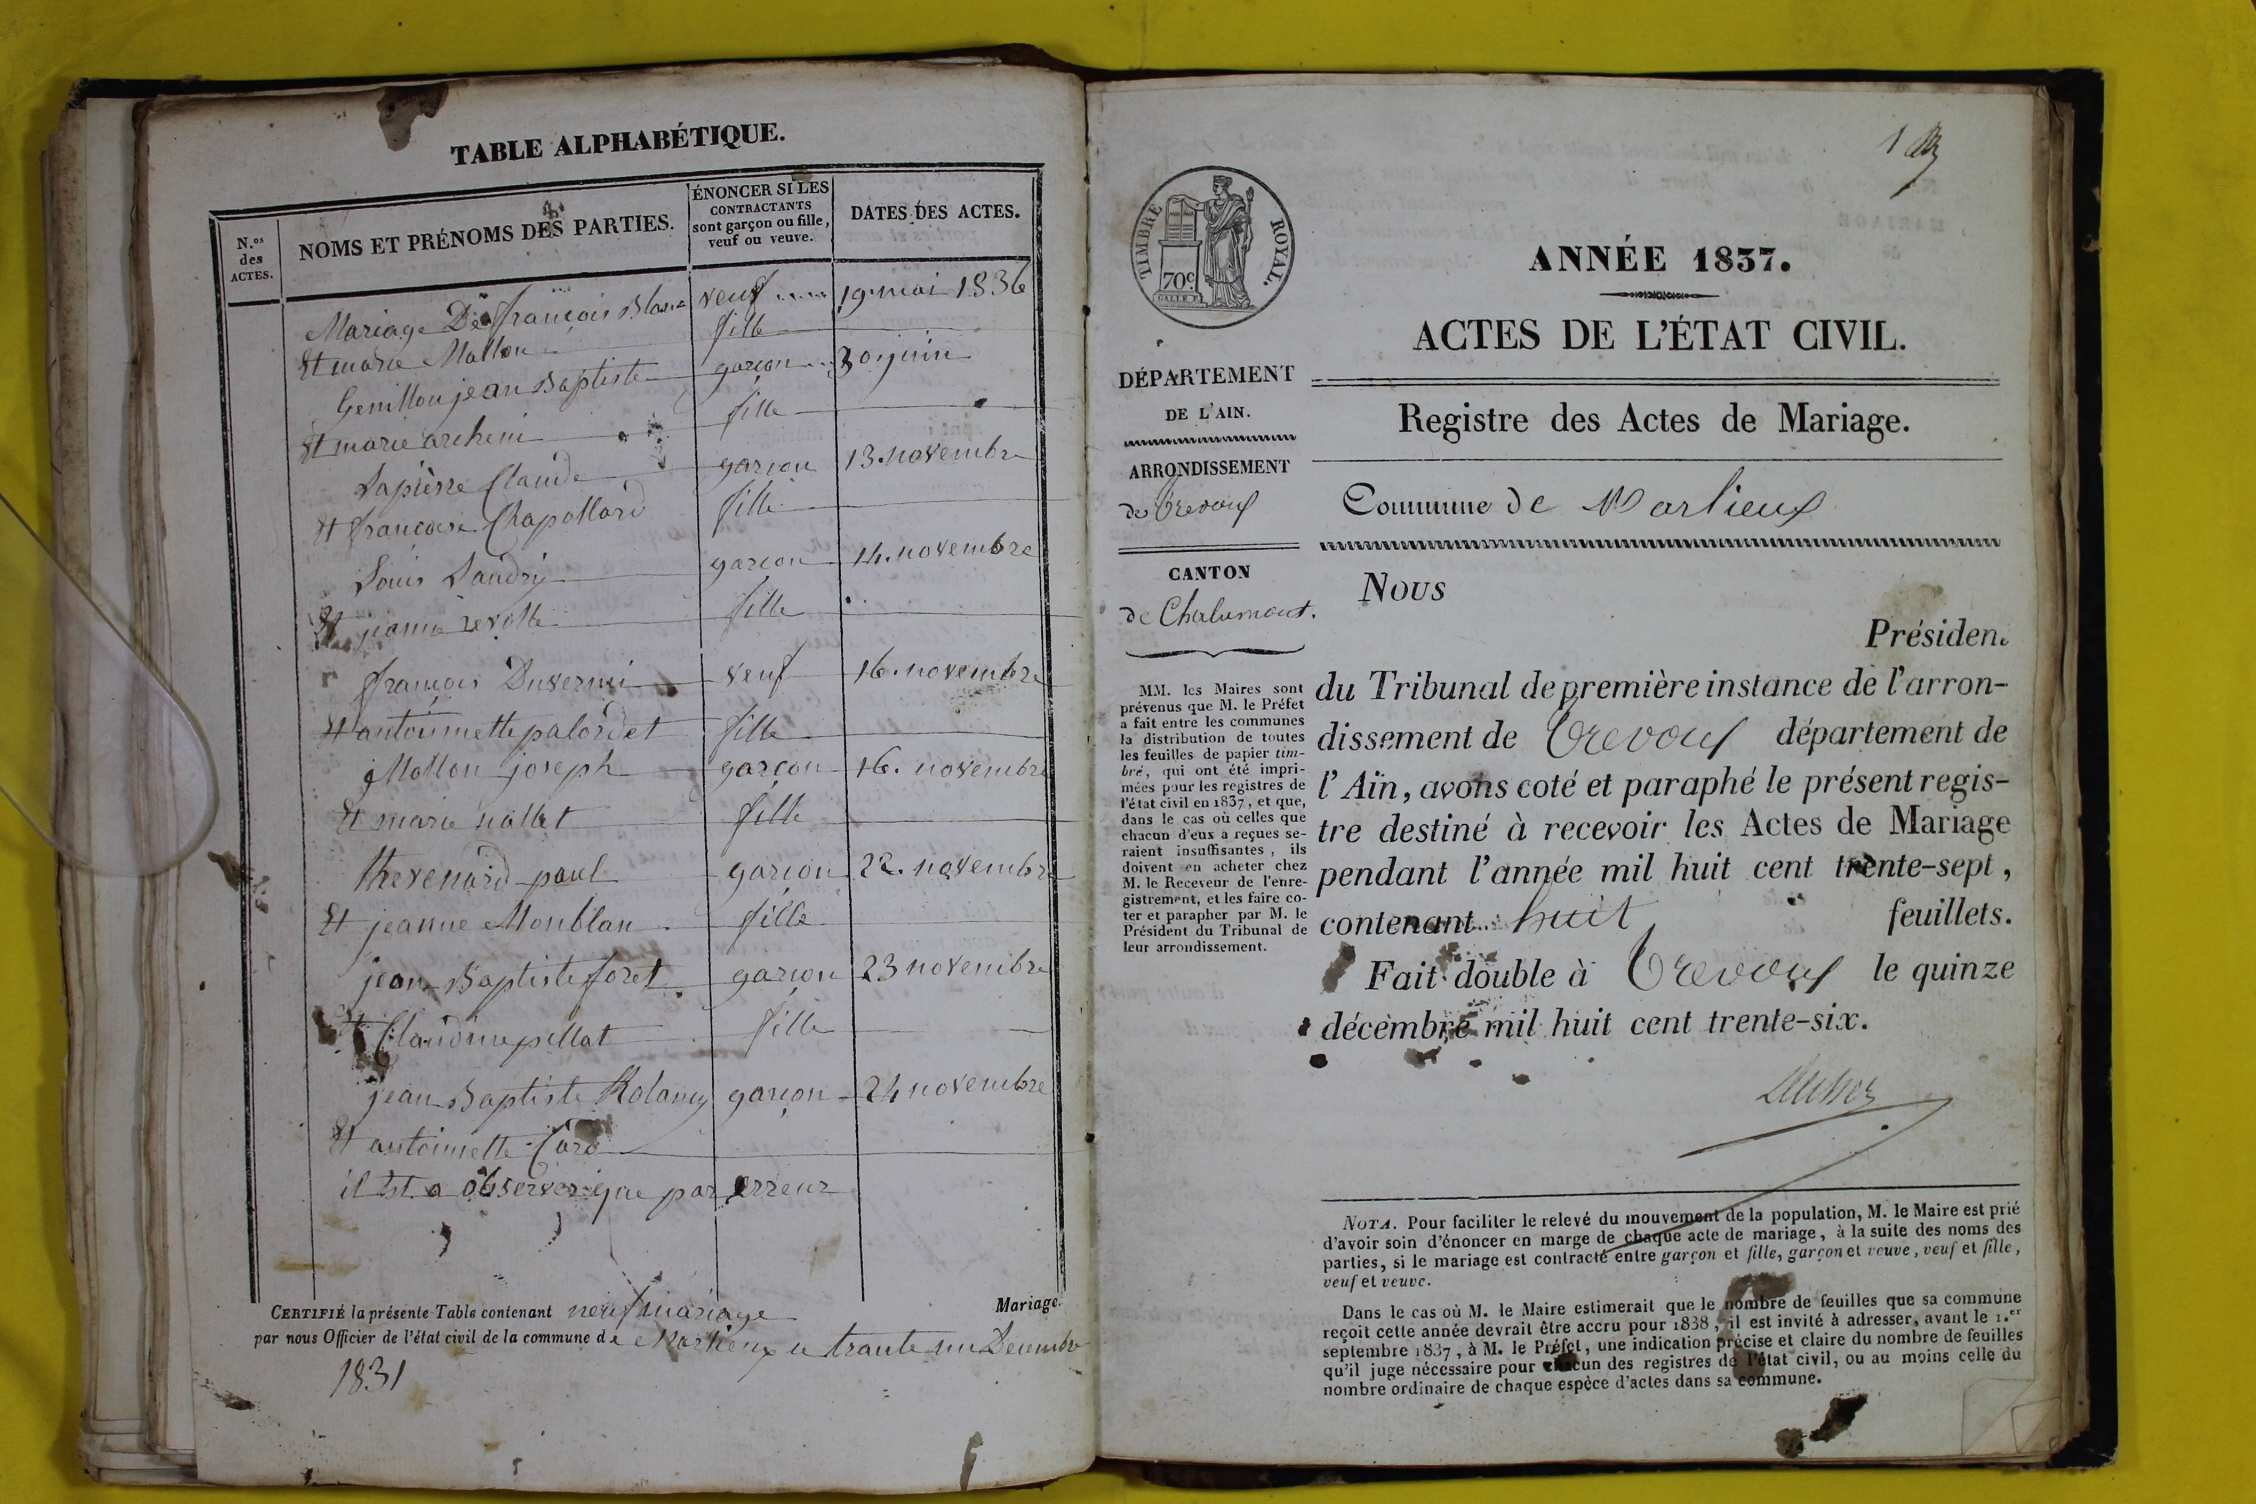 TABLE ALPHABÉTIQUE.
N.os des ACTES.
NOMS ET PRÉNOMS DES PARTIES.
ÉNONCER SI LES CONTRACTANTS sont garçon ou fille, veuf ou veuve.
DATES DES ACTES.
Mariage De françois Blanc veuf 19 mai 1836
Et marie Mallon fille
Genillon jean Baptiste garçon 30 juin
Et marie archeni fille
Lapièrre Claude garçon 13. novembre
Et françoise Chapollard fille
Louis Landry garçon 14. novembre
Et jeanne revolle fille
françois Duverni veuf 16. novembre
Et antoinette palordet fille
Mollon joseph garçon 16. novembre
Et marie nallet fille
thevenard paul garçon 22. novembre
Et jeanne Monblan fille
jean Baptiste foret garçon 23 novembre
Et Claudine pillat fille
jean Baptiste garçon 24 novembre
Et antoinette
il Est a observer que par erreur
CERTIFIÉ la présente Table contenant neuf mariage Mariage.
par nous Officier de l'état civil de la commune de Marlieux le trante un Decembre
1831
1
TIMBRE ROYAL.
70c
ANNÉE 1837.
ACTES DE L'ÉTAT CIVIL.
DÉPARTEMENT
DE L'AIN.
Registre des Actes de Mariage.
ARRONDISSEMENT
de Trevoux
Commune de Marlieux
CANTON
de Chalamont.
MM. les Maires sont
prévenus que M. le Préfet
a fait entre les communes
la distribution de toutes
les feuilles de papier tim-
bré, qui ont été impri-
mées pour les registres de
l'état civil en 1837, et que,
dans le cas où celles que
chacun d'eux a reçues se-
raient insuffisantes, ils
doivent en acheter chez
M. le Receveur de l'enre-
gistrement, et les faire co-
ter et parapher par M. le
Président du Tribunal de
leur arrondissement.
Nous
Présiden.
du Tribunal de première instance de l'arron-
dissement de Trevoux département de
l'Aïn, avons coté et paraphé le présent regis-
tre destiné à recevoir les Actes de Mariage
pendant l'année mil huit cent trente-sept,
contenant huit feuillets.
Fait double à Trevoux le quinze
décembre mil huit cent trente-six.
NOTA. Pour faciliter le relevé du mouvement de la population, M. le Maire est prié
d'avoir soin d'énoncer en marge de chaque acte de mariage, à la suite des noms des
parties, si le mariage est contracté entre garçon et fille, garçon et veuve, veuf et fille,
veuf et veuve.
Dans le cas où M. le Maire estimerait que le nombre de feuilles que sa commune
reçoit cette année devrait être accru pour 1838, il est invité à adresser, avant le 1.er
septembre 1837, à M. le Préfet, une indication précise et claire du nombre de feuilles
qu'il juge nécessaire pour chacun des registres de l'état civil, ou au moins celle du
nombre ordinaire de chaque espèce d'actes dans sa commune.